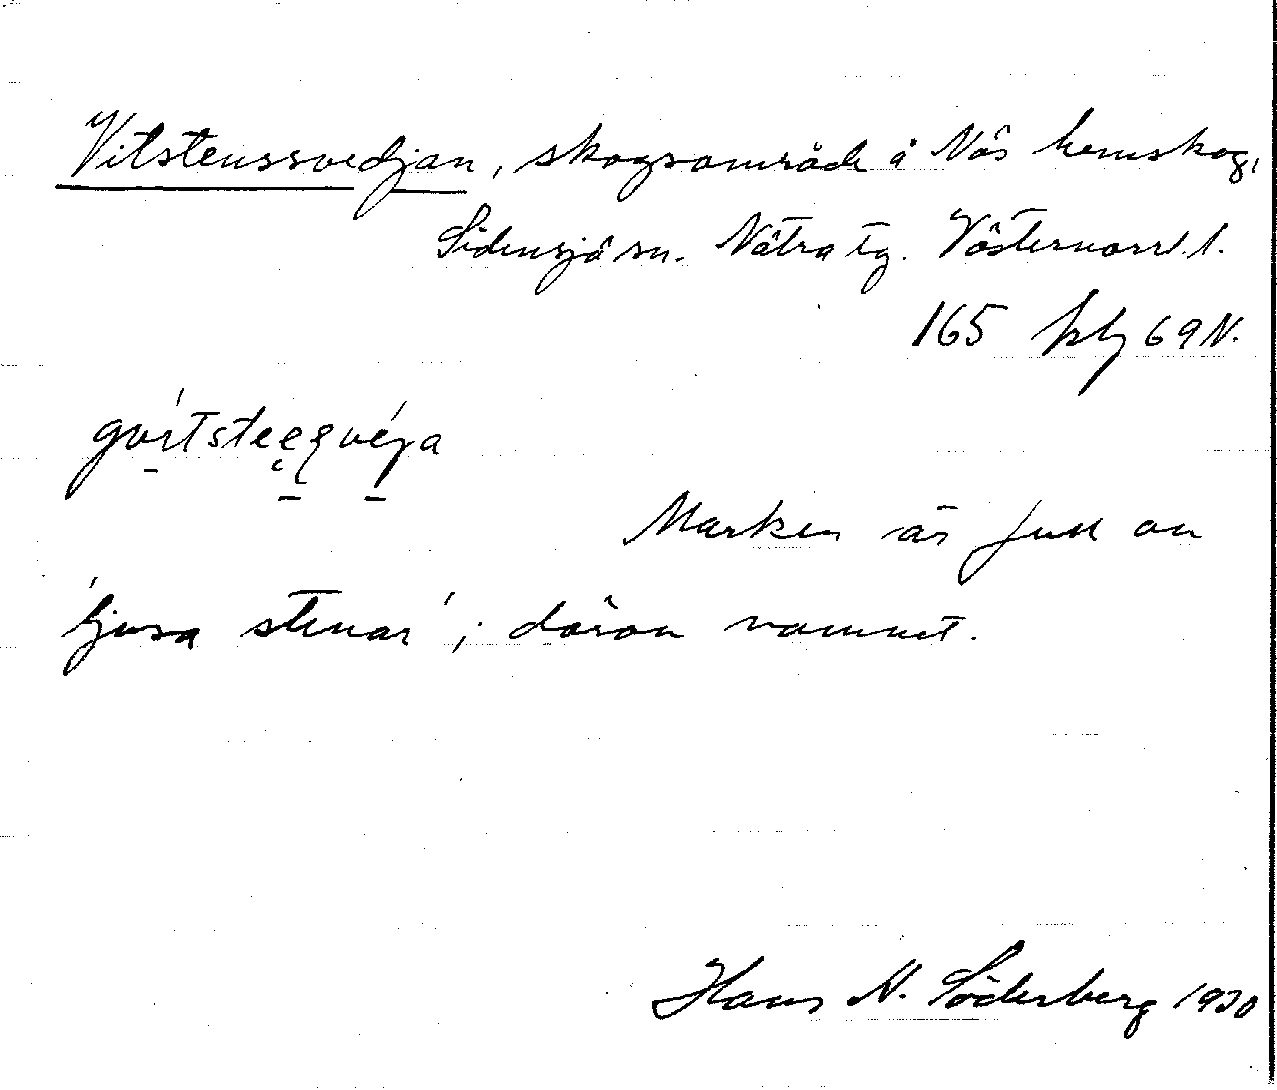 Vitstenssvedjan, skogsområde å Näs hemskog,
Sidensjö sn. Nätra tg. Västernorrl. l.
165 kbg 69 N.
Marken är full av
'ljusa stenar'; därav namnet.
Hans N. Söderberg 1930